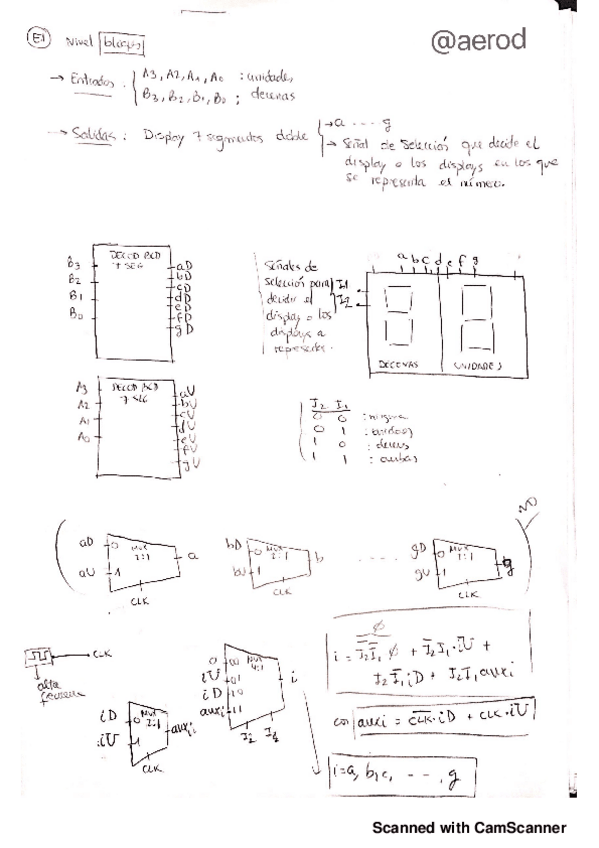 E1 Nivel bloques
@aerod
→ Entradas: A3, A2, A1, A0 : unidades
B3, B2, B1, B0 ; decenas
→ Salidas: Display 7 segmentos doble → a ... g
→ Señal de selección que decide el
display o los displays en los que
se representa el número.
DECOD BCD
7 SEG
B3
B2
B1
B0
aD
bD
cD
dD
eD
fD
gD
Señales de
selección para
decidir el
display o los
displays a
representar.
I1
I2
a b c d e f g
DECENAS
UNIDADES
DECOD BCD
7 SEG
A3
A2
A1
A0
aU
bU
cU
dU
eU
fU
gU
I2 I1
0 0 : ninguno
0 1 : unidades
1 0 : decenas
1 1 : ambas
NO
aD 0 MUX 2:1 a
aU 1
CLK
bD 0 MUX 2:1 b
bU 1
CLK
....
gD 0 MUX 2:1 g
gU 1
CLK
CLK
alta
frecuencia
iD 0 MUX 2:1 auxi
iU 1
CLK
0 00 MUX 4:1 i
iU 01
iD 10
auxi 11
I2 I1
i = I̅2 I̅1 ∅ + I̅2 I1 · iU +
I2 I̅1 iD + I2 I1 auxi
con auxi = C̅L̅K̅ · iD + CLK · iU
i = a, b, c, ..., g
Scanned with CamScanner